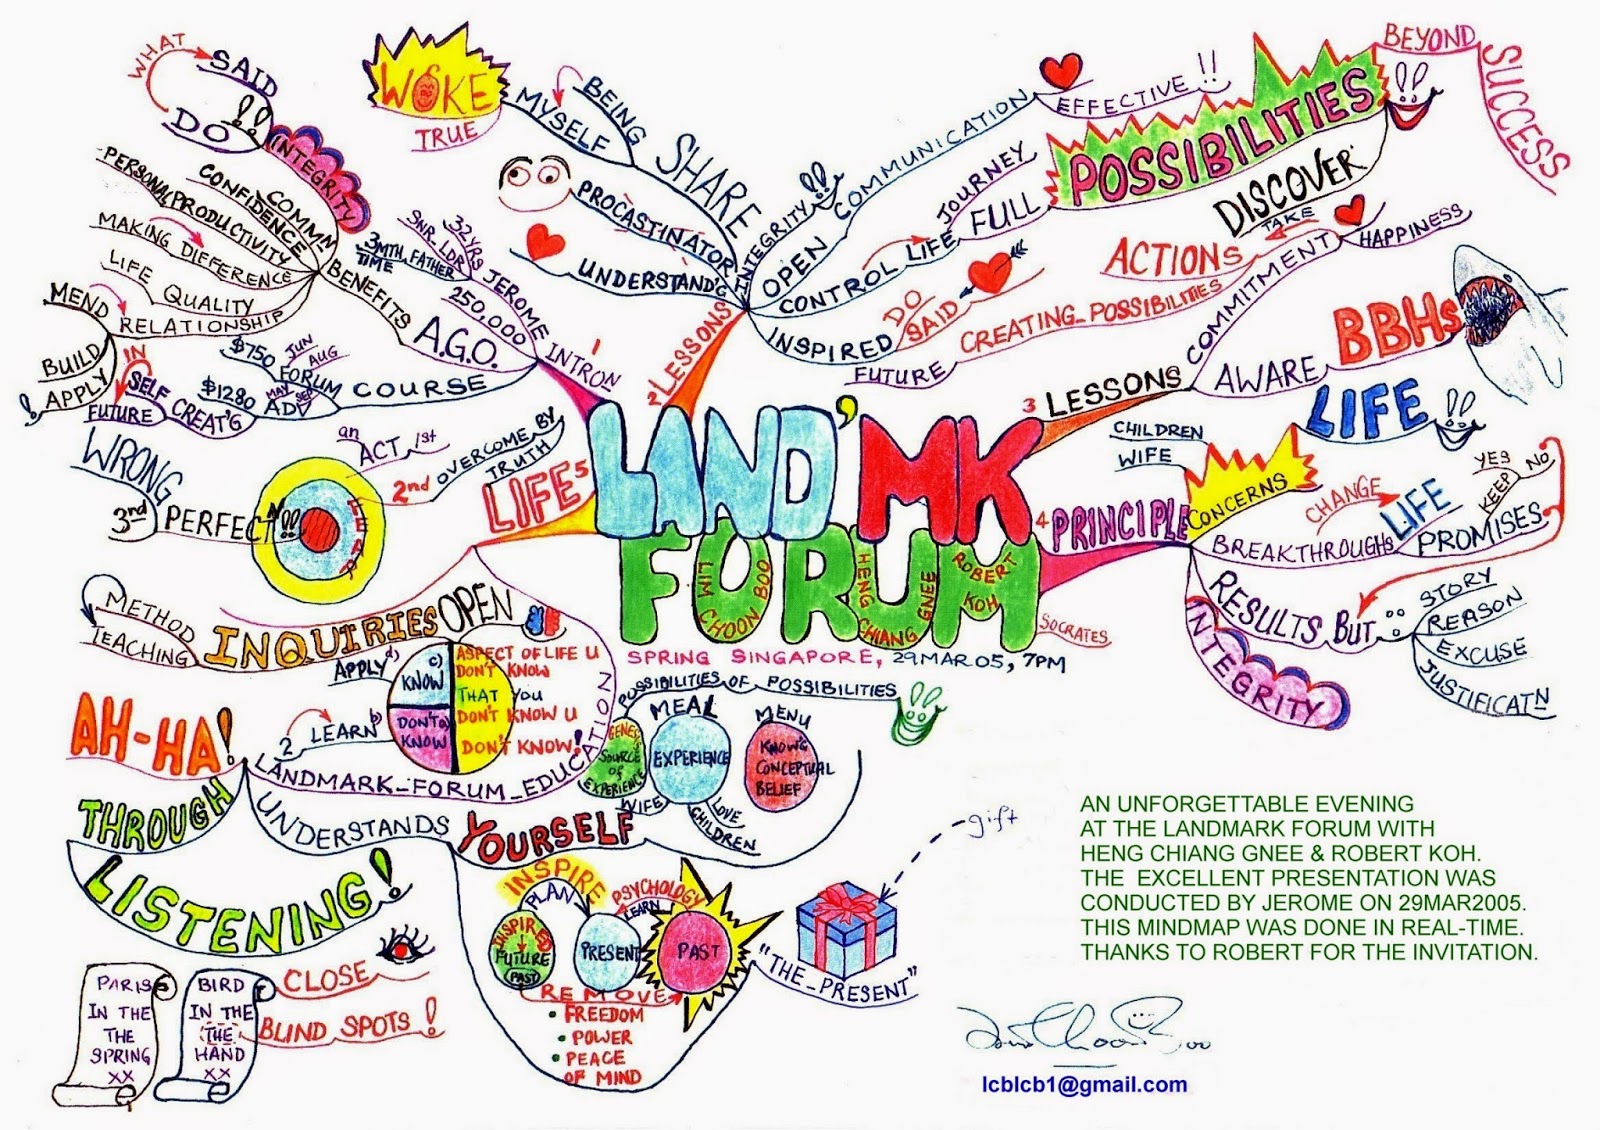 LAND'MK
FORUM
LIM CHOON BOO
HENG CHIANG GNEE
ROBERT KOH
SPRING SINGAPORE, 29MAR05, 7PM
SOCRATES
1
INTRON
JEROME
32YRS
SNR LDR
3MTH FATHER
TIME
250,000
A.G.O.
BENEFITS
INTEGRITY
WHAT
SAID
DO !!
COMMN
CONFIDENCE
PERSONAL PRODUCTIVITY
MAKING DIFFERENCE
LIFE QUALITY
RELATIONSHIP
MEND
BUILD
APPLY
!
COURSE
$750 FORUM
JUN
AUG
$1280 ADV
MAY
SEPT
SELF CREAT'G
IN
FUTURE
2 LESSONS
SHARE
BEING
MYSELF
WOKE
TRUE
PROCASTINATOR
UNDERSTAND'G
INTEGRITY !!
OPEN
COMMUNICATION
EFFECTIVE !!
CONTROL LIFE
JOURNEY
FULL
POSSIBILITIES
!!
BEYOND
SUCCESS
DISCOVER
INSPIRED
DO
SAID
FUTURE
CREATING_POSSIBILITIES
ACTIONS
TAKE
3 LESSONS
COMMITMENT
HAPPINESS
AWARE
BBHs
4 PRINCIPLE
CONCERNS
CHILDREN
WIFE
LIFE !!
BREAKTHROUGHS
CHANGE
LIFE
PROMISES
KEEP
YES
NO
RESULTS BUT
STORY
REASON
EXCUSE
JUSTIFICATN
INTEGRITY
LIFE 5
an
ACT 1st
2nd OVERCOME BY
TRUTH
3rd
WRONG
PERFECTN !!
INQUIRIES
METHOD
TEACHING
OPEN
APPLY d)
c)
KNOW
DON'T
KNOW
2 LEARN b)
ASPECT OF LIFE U
DON'T KNOW
THAT YOU
DON'T KNOW U
DON'T KNOW!
LANDMARK_FORUM_EDUCATION
AH-HA!
THROUGH
LISTENING!
UNDERSTANDS
YOURSELF
POSSIBILITIES OF POSSIBILITIES
GENESIS
SOURCE
OF
EXPERIENCE
MEAL
EXPERIENCE
WIFE
LOVE
CHILDREN
MENU
KNOW'G
CONCEPTUAL
BELIEF
INSPIRE
PLAN
PSYCHOLOGY
LEARN
INSPIRED
FUTURE
PAST
PRESENT
PAST
REMOVE
• FREEDOM
• POWER
• PEACE
OF MIND
"THE_PRESENT"
gift
CLOSE
BLIND SPOTS!
PARIS
IN THE
THE
SPRING
XX
BIRD
IN THE
THE
HAND
XX
AN UNFORGETTABLE EVENING
AT THE LANDMARK FORUM WITH
HENG CHIANG GNEE & ROBERT KOH.
THE EXCELLENT PRESENTATION WAS
CONDUCTED BY JEROME ON 29MAR2005.
THIS MINDMAP WAS DONE IN REAL-TIME.
THANKS TO ROBERT FOR THE INVITATION.
lcblcb1@gmail.com